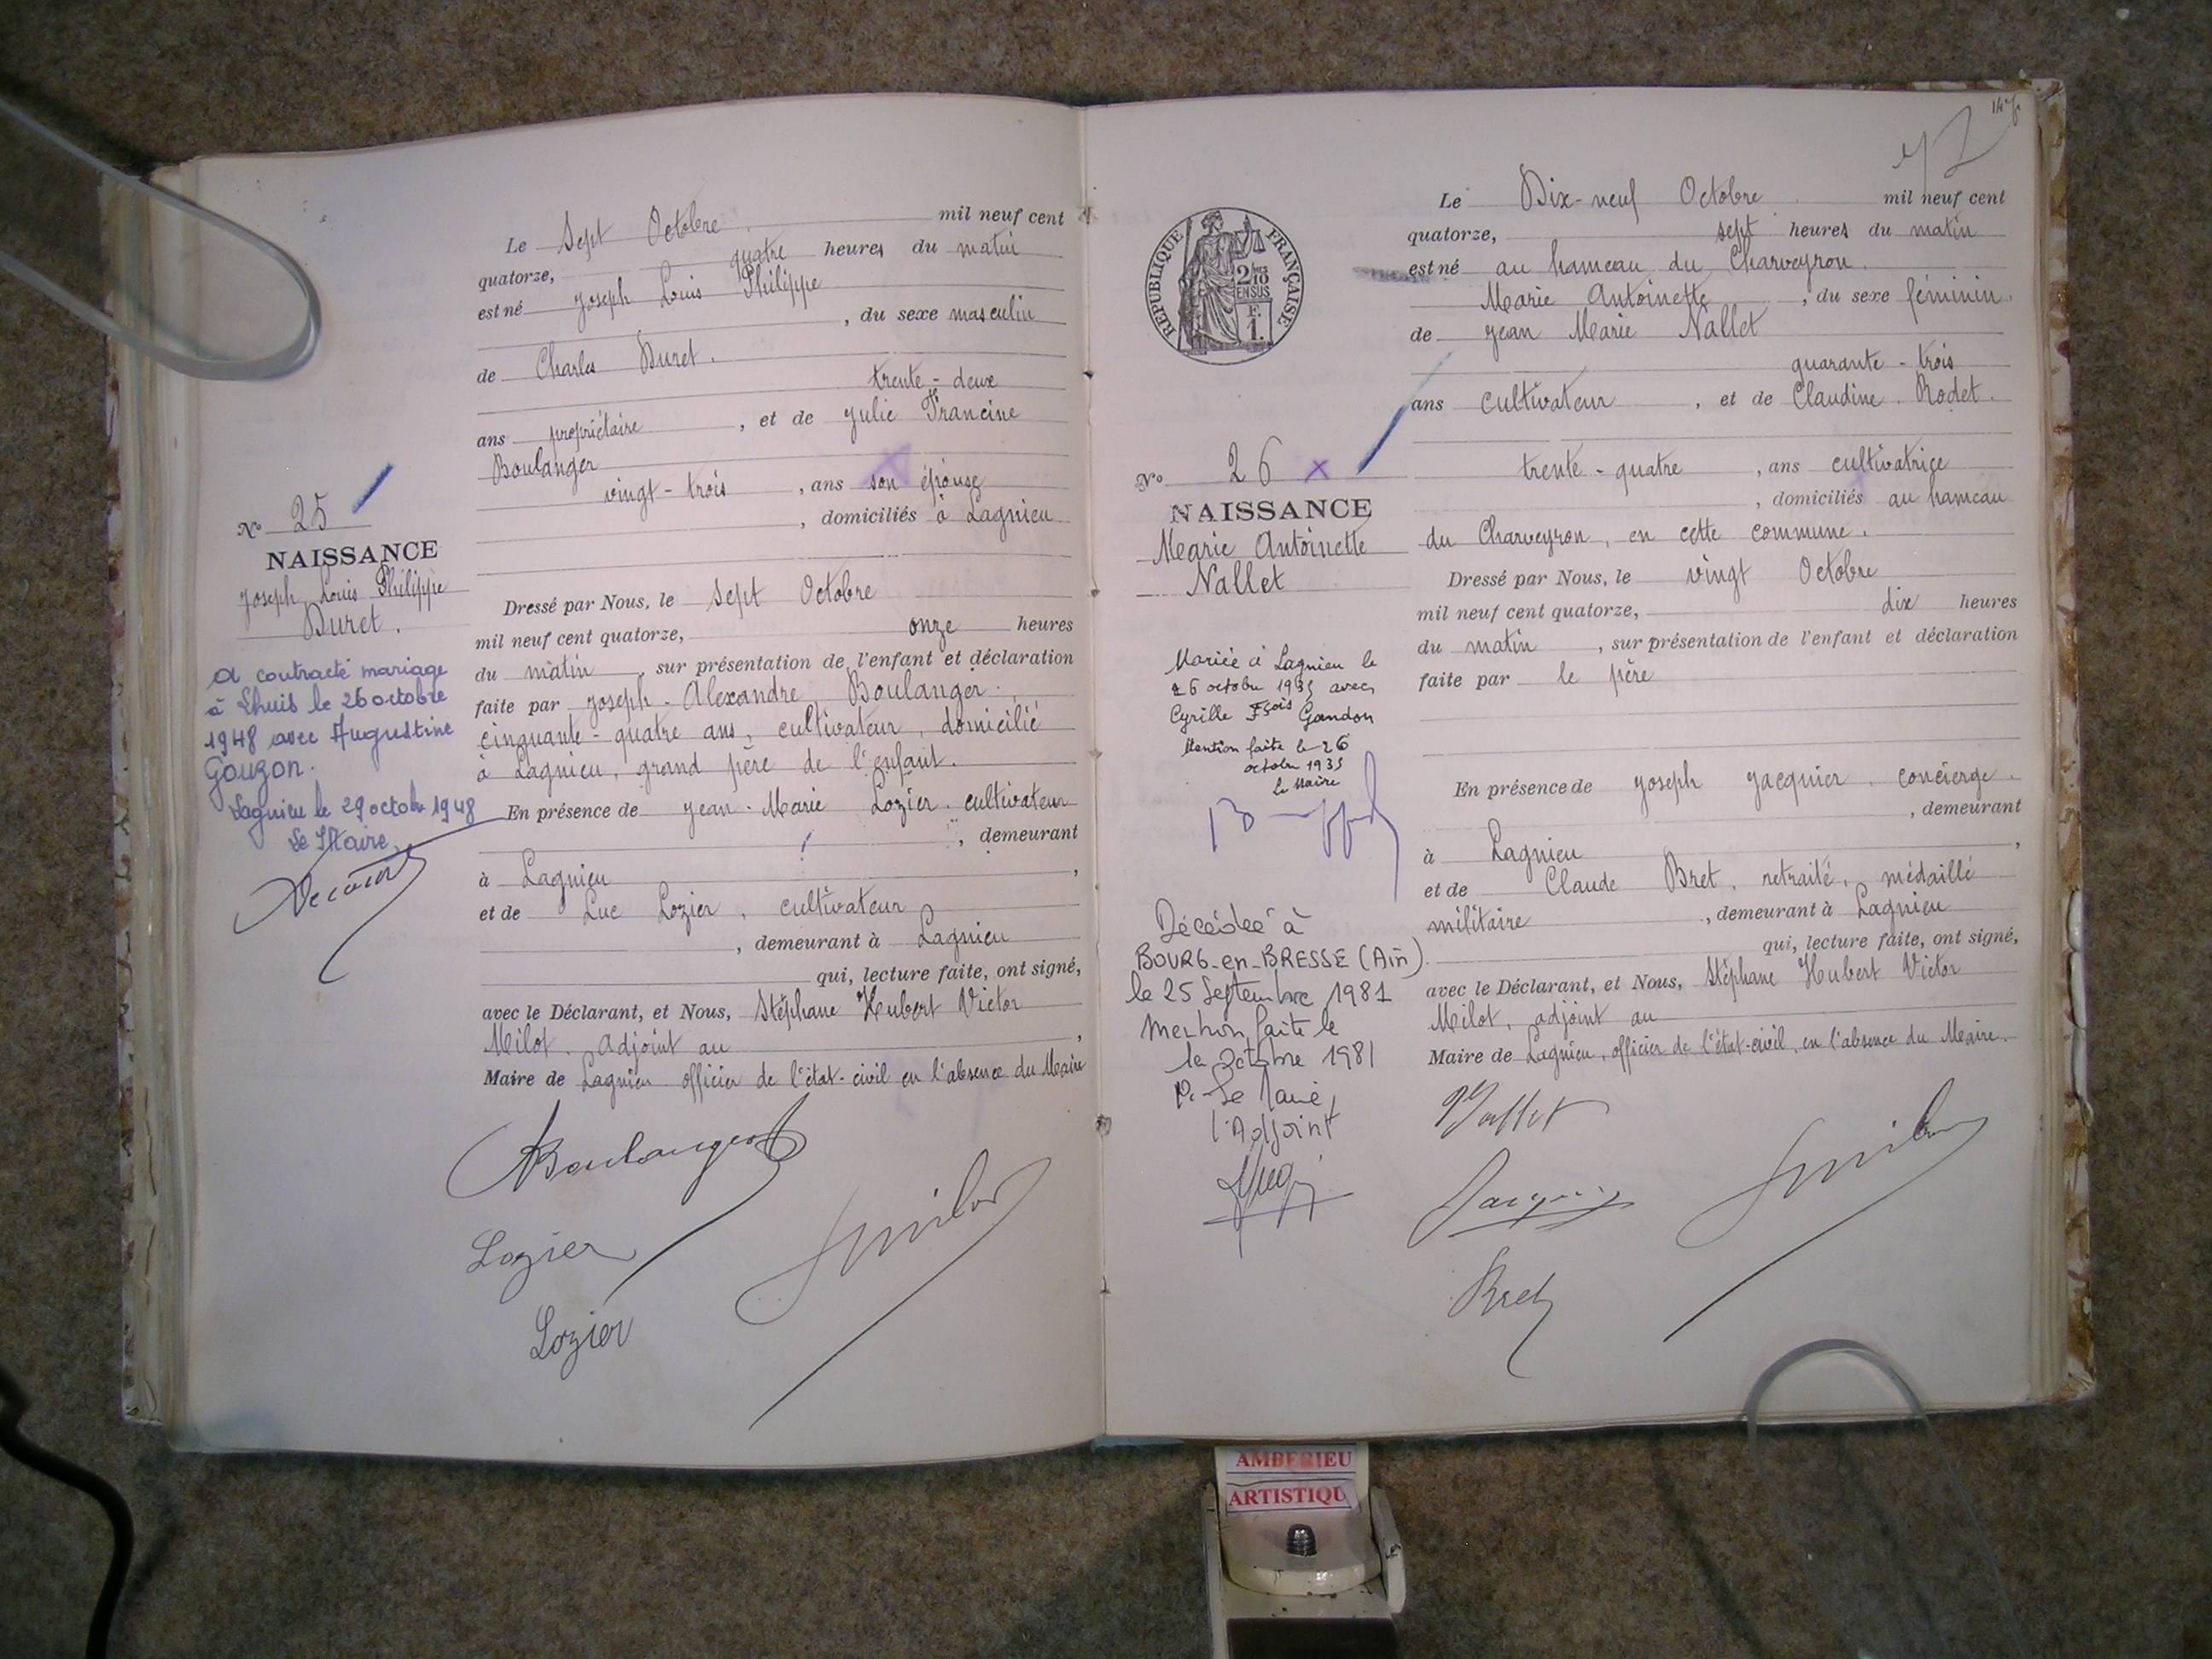 Le Sept Octobre mil neuf cent
quatorze, quatre heures du matin
est né Joseph Louis Philippe
, du sexe masculin
de Charles Duret.
trente-deux
ans propriétaire, et de Julie Francine
Boulanger
vingt-trois, ans son épouse
, domiciliés à Lagnieu
No 25
NAISSANCE
Joseph Louis Philippe
Duret.
Dressé par Nous, le sept Octobre
mil neuf cent quatorze, onze heures
du matin, sur présentation de l'enfant et déclaration
faite par Joseph-Alexandre Boulanger.
cinquante-quatre ans, cultivateur, domicilié
à Lagnieu, grand père de l'enfant.
En présence de Jean-Marie Lozier. cultivateur
, demeurant
à Lagnieu,
et de Luc Lozier, cultivateur
, demeurant à Lagnieu
qui, lecture faite, ont signé,
avec le Déclarant, et Nous, Stéphane Hubert Victor
Milot. Adjoint au,
Maire de Lagnieu officier de l'état-civil en l'absence du Maire
A contracté mariage
à Lhuis le 26 octobre
1948 avec Augustine
Gouzon.
Lagnieu le 29 octobre 1948
Le Maire,
Boulanger
Lozier
Lozier
Smilot
147
72
REPUBLIQUE FRANÇAISE
2/10
EN SUS
F.
1.
Le Dix-neuf Octobre mil neuf cent
quatorze, sept heures du matin
est né au hameau du Charveyron.
Marie Antoinette, du sexe féminin.
de Jean Marie Nallet
quarante-trois
ans cultivateur, et de Claudine Rodet.
trente-quatre, ans cultivatrice
, domiciliés au hameau
du Charveyron, en cette commune.
No 26
NAISSANCE
Marie Antoinette
Nallet
Dressé par Nous, le vingt Octobre
mil neuf cent quatorze, dix heures
du matin, sur présentation de l'enfant et déclaration
faite par le père
En présence de Joseph Jacquier. concierge.
, demeurant
à Lagnieu,
et de Claude Bret, retraité, médaillé
militaire, demeurant à Lagnieu
qui, lecture faite, ont signé,
avec le Déclarant, et Nous, Stéphane Hubert Victor
Milot, adjoint au
Maire de Lagnieu, officier de l'état-civil, en l'absence du Maire.
Mariée à Lagnieu le
26 octobre 1935 avec
Cyrille Fçois Gandon
Mention faite le 26
octobre 1935
Le Maire
Décédée à
BOURG-en-BRESSE (Ain)
le 25 Septembre 1981
Mention faite le
1er Octobre 1981
P. Le Maire,
l'Adjoint
Nallet
Jacquier
Smilot
Bret
AMBERIEU
ARTISTIQU